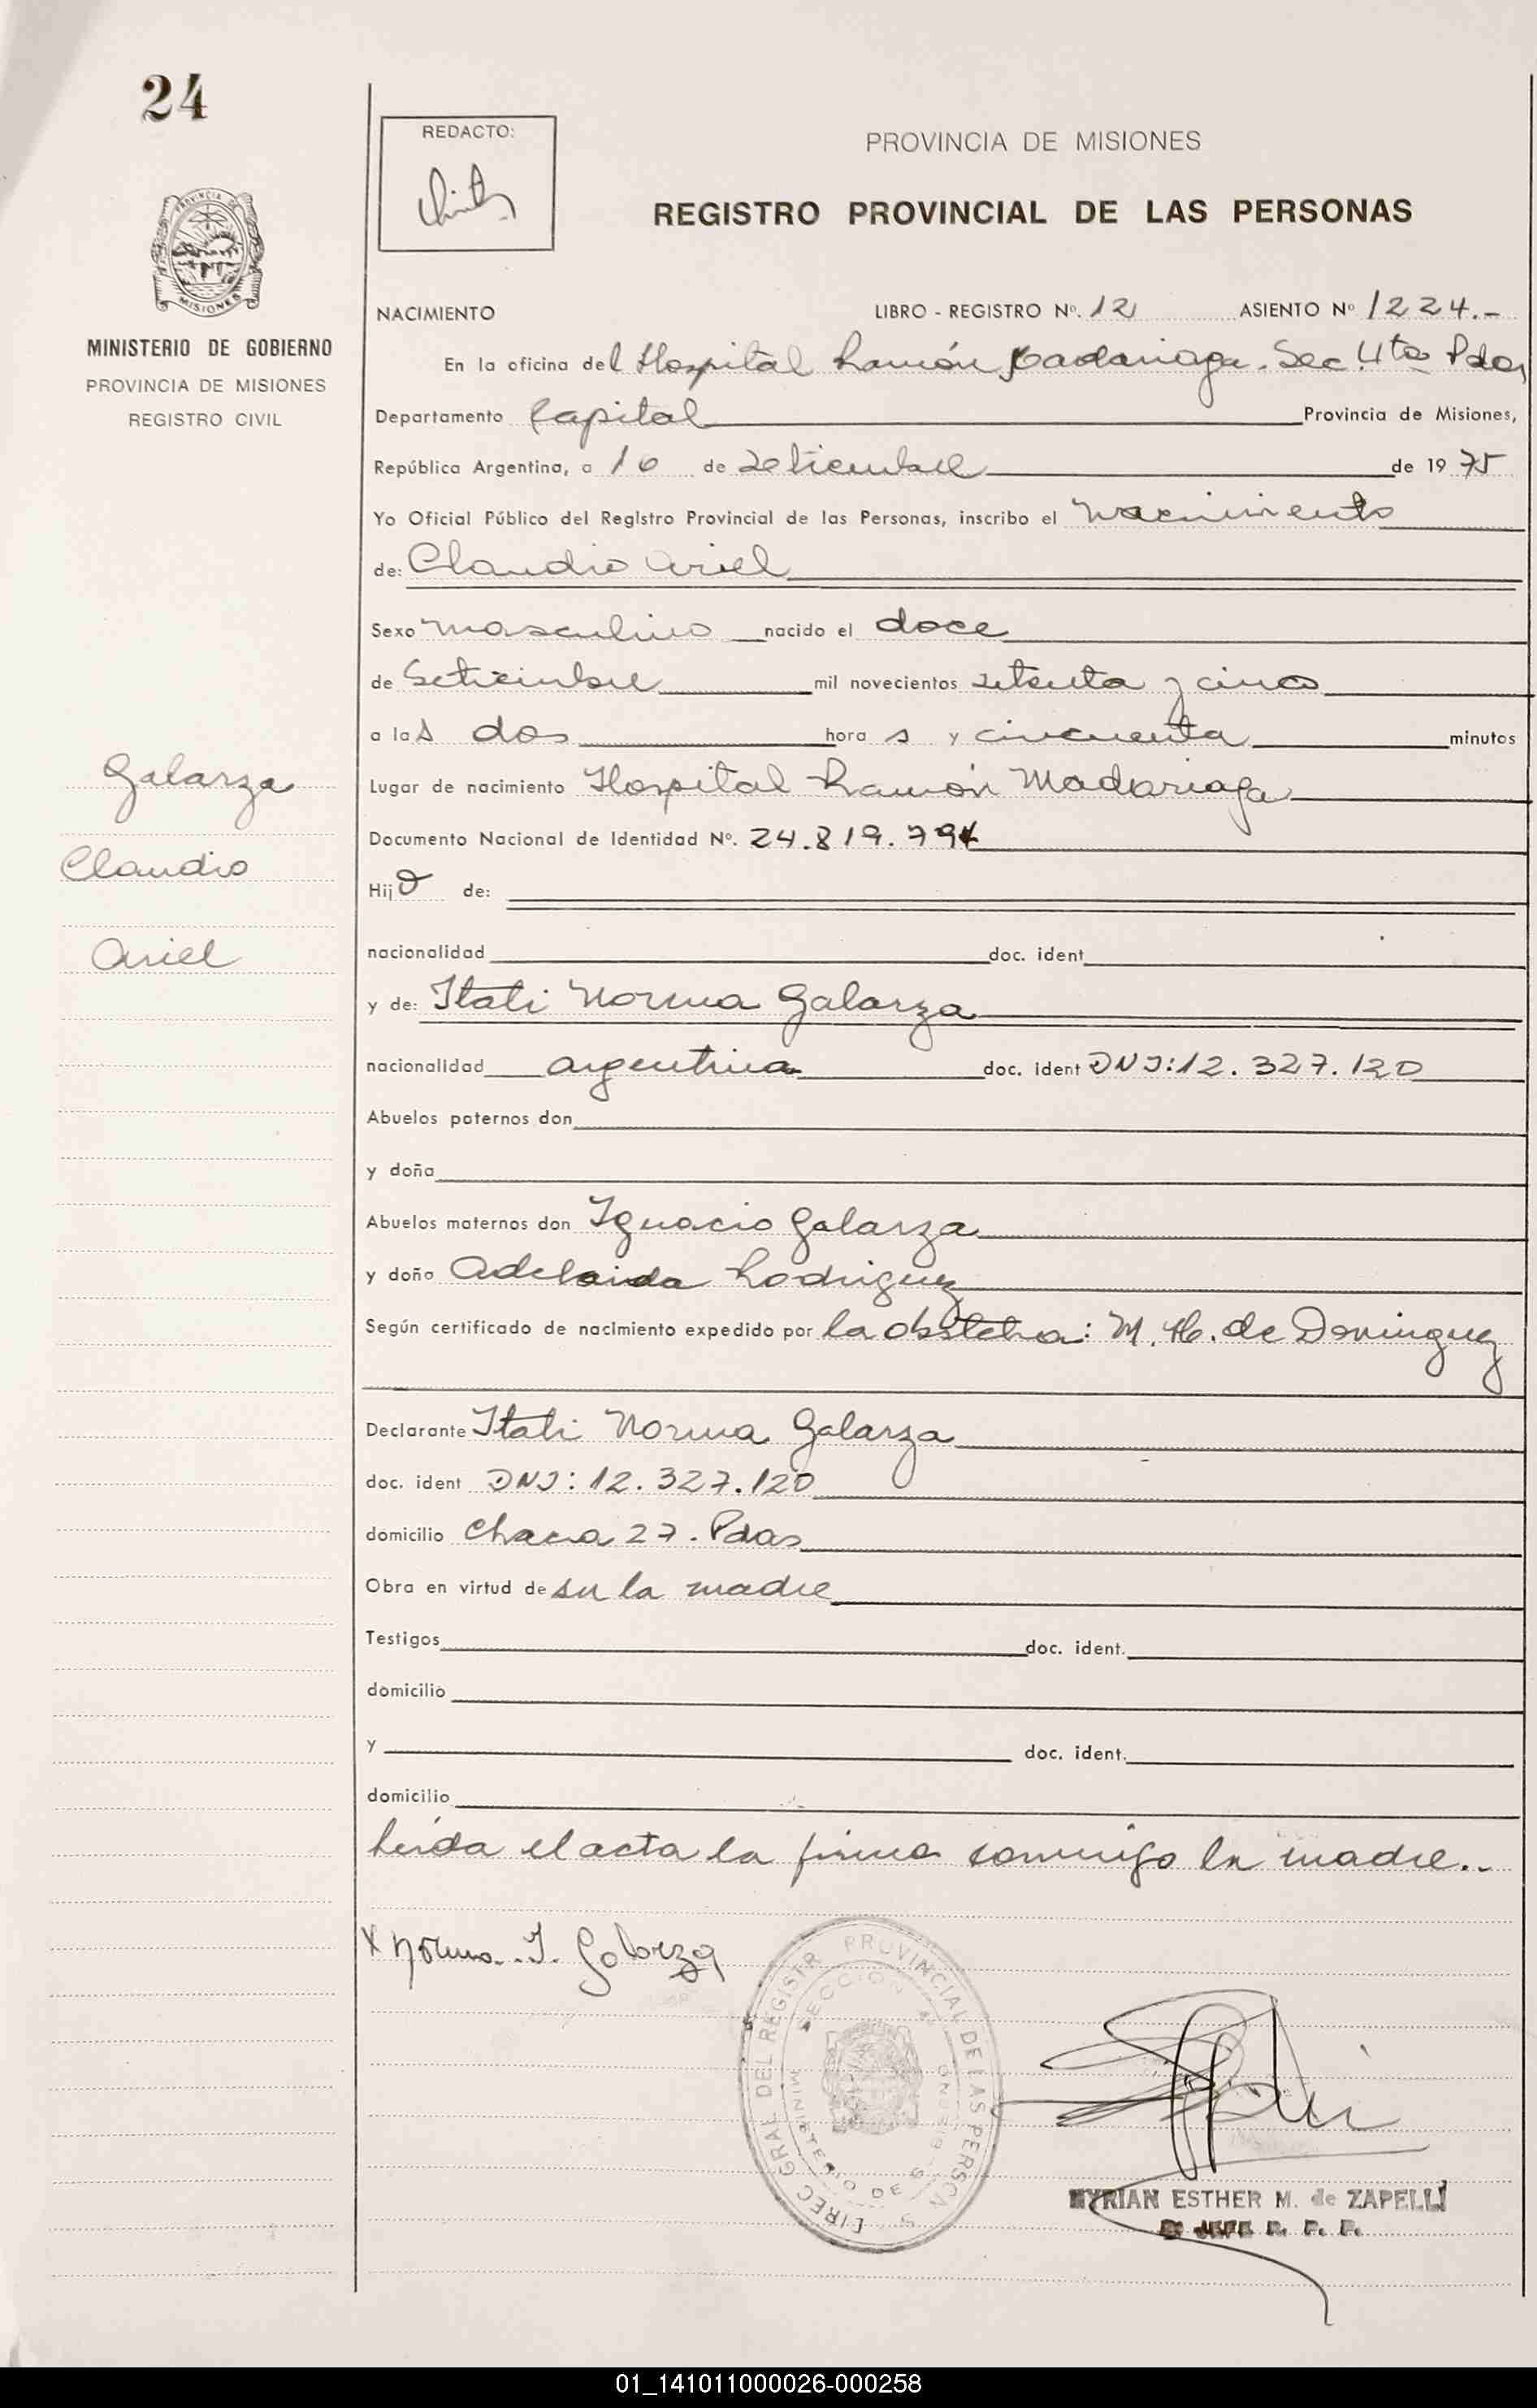 24
REDACTO:
PROVINCIA DE MISIONES
REGISTRO PROVINCIAL DE LAS PERSONAS
PROVINCIA DE
MISIONES
MINISTERIO DE GOBIERNO
PROVINCIA DE MISIONES
REGISTRO CIVIL
NACIMIENTO LIBRO - REGISTRO Nº. 12 ASIENTO Nº 1224.-
En la oficina del Hospital Ramón Madariaga. Sec. 4ta Pdas
Departamento Capital Provincia de Misiones,
República Argentina, a 16 de setiembre de 1975
Yo Oficial Público del Registro Provincial de las Personas, inscribo el nacimiento
de: Claudio Ariel
Sexo masculino nacido el doce
de Setiembre mil novecientos setenta y cinco
a las dos horas y cincuenta minutos
Galarza
Claudio
Ariel
Lugar de nacimiento Hospital Ramón Madariaga
Documento Nacional de Identidad Nº. 24.819.794
Hijo de:
nacionalidad doc. ident
y de: Itati Norma Galarza
nacionalidad argentina doc. ident DNI: 12.327.120
Abuelos paternos don
y doña
Abuelos maternos don Ignacio Galarza
y doña Adelaida Rodriguez
Según certificado de nacimiento expedido por la obstetra: M. H. de Dominguez
Declarante Itati Norma Galarza
doc. ident DNI: 12.327.120
domicilio Chacra 27. Pdas
Obra en virtud de su la madre
Testigos doc. ident.
domicilio
y doc. ident.
domicilio
Leida el acta la firma conmigo la madre..
X Norma. I. Galarza
DIREC GRAL DEL REGISTR PROVINCIAL DE LAS PERSONAS
SECCION
MINISTERIO DE GOBIERNO
MYRIAN ESTHER M. de ZAPELLI
JEFE R. P. P.
01_141011000026-000258